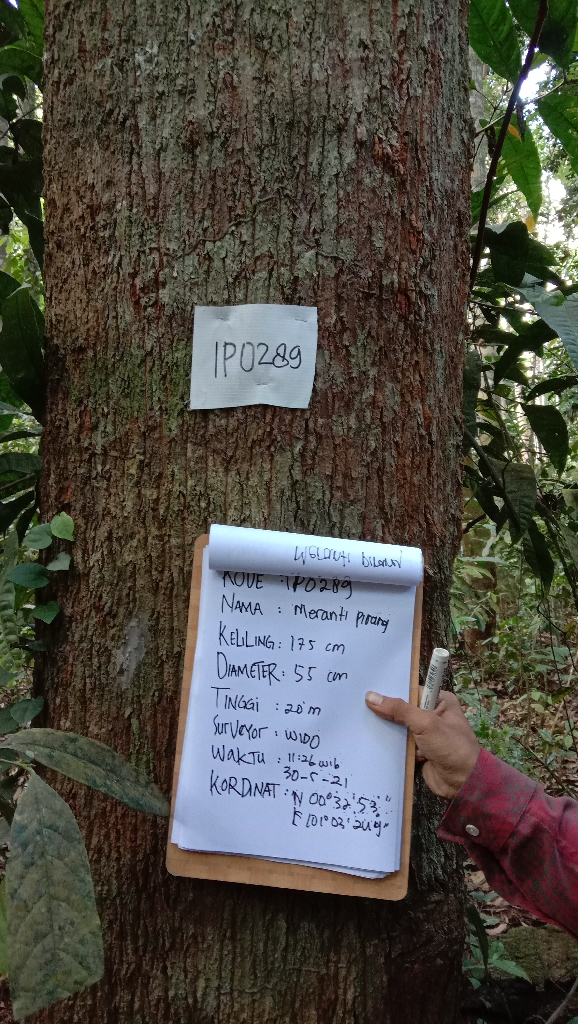 IPO289
KODE : IPO289
NAMA : Meranti pinang
KELILING : 175 cm
DIAMETER : 55 cm
TINGGI : 20 m
SURVEYOR : WIDO
WAKTU : 11:26 WIB
30-5-21
KORDINAT : N 00° 32' 53."
E 101° 03'